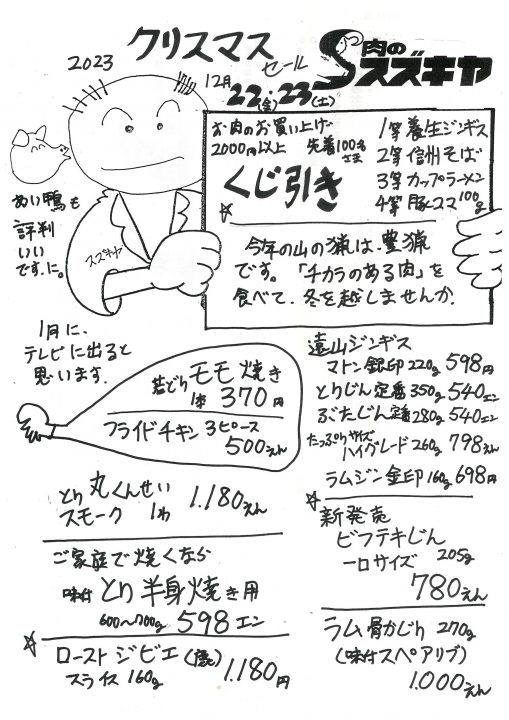 2023
クリスマス
セール
肉の
スズキヤ
12月
22(金)・23(土)
お肉のお買い上げ
2000円以上 先着100名さま
くじ引き
1等 養生ジンギス
2等 信州そば
3等 カップラーメン
4等 豚コマ100g
あい鴨も
評判
いい
です.に。
スズキヤ
今年の山の猟は、豊猟
です。「チカラのある肉」を
食べて、冬を越しませんか.
1月に、
テレビに出ると
思います.
若どりモモ焼き
1本 370円
フライドチキン 3ピース
500えん
遠山ジンギス
マトン銀印220g 598円
とりじん定番350g 540エン
ぶたじん定番280g 540エン
たっぷりサイズ
ハイグレード260g 798えん
ラムジン金印160g 698円
とり丸くんせい
スモーク 1わ 1.180えん
☆
新発売
ビフテキじん
一口サイズ 205g
780えん
ご家庭で焼くなら
味付 とり半身焼き用
600〜700g 598エン
☆
ローストジビエ(鹿)
スライス160g 1.180円
ラム骨かじり 270g
(味付スペアリブ)
1.000えん